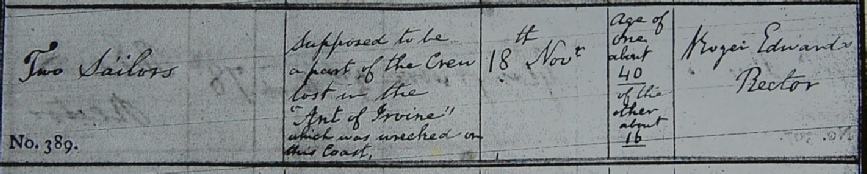 Two Sailors
No. 389.
Supposed to be
a part of the Crew
lost in the
"Ant of Irvine"
which was wrecked on
this Coast.
18th Novr
Age of
one
about
40
of the
other
about
16
Roger Edwards
Rector